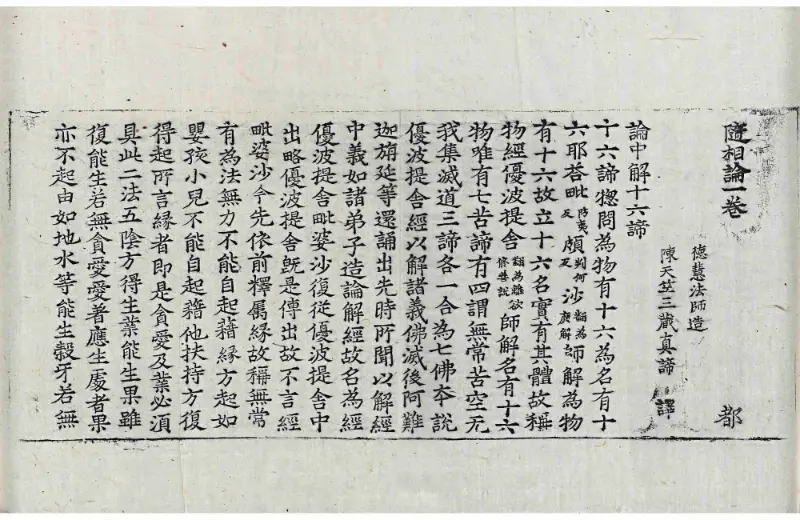 隨相論一卷 都
德慧法師造
陳天竺三藏真諦 譯
論中解十六諦
十六諦揔問為物有十六為名有十
六耶荅毗 防夷反 頗 判何反 沙 翻為廣解 師解為物
有十六故立十六名實有其體故稱
物經優波提舍 師解名有十六
物唯有七苦諦有四謂無常苦空无
我集滅道三諦各一合為七佛夲說
優波提舍經以解諸義佛滅後阿難
迦旃延等還誦出先時所聞以解經
中義如諸弟子造論解經故名為經
優波提舍毗婆沙復從優波提舍中
出略優波提舍旣是傳出故不言經
毗婆沙今先依前釋属緣故稱無常
有為法無力不能自起藉緣方起如
嬰孩小兒不能自起藉他扶持方復
得起所言緣者即是貪愛及業必須
具此二法五陰方得生業能生果雖
復能生若無貪愛愛著應生處者果
亦不起由如地水等能生穀牙若無